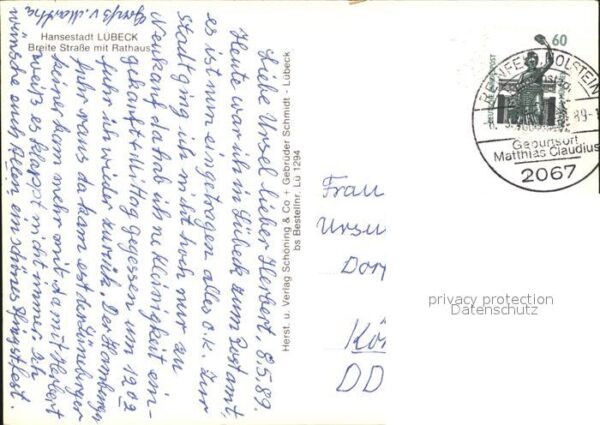 Hansestadt LÜBECK
Breite Straße mit Rathaus
Herst. u. Verlag Schöning & Co + Gebrüder Schmidt - Lübeck
bs Bestellnr. Lü 1294
Liebe Ursel lieber Herbert, 8.5.89.
Heute war ich in Lübeck zum Postamt,
es ist nun eingetragen alles o.k. Zur
Stadt ging ich nicht noch nur zu
Neukauf da hab ich ne Kleinigkeit ein-
gekauft + Mittag gegessen, um 1202
fuhr ich wieder zurück. Der Hamburger
fuhr raus da kam erst der Lüneburger
keiner kam mehr mit. Ja mit Herbert
weiß es klappt nicht immer. Ich
wünsche euch allen ein schönes Pfingstfest.
Gruß v. Martha
60
DEUTSCHE BUNDESPOST
REINFELD, HOLSTEIN
89-1
Geburtsort
Matthias Claudius
2067
Frau
Ursu
Dor
Kön
DD
privacy protection
Datenschutz